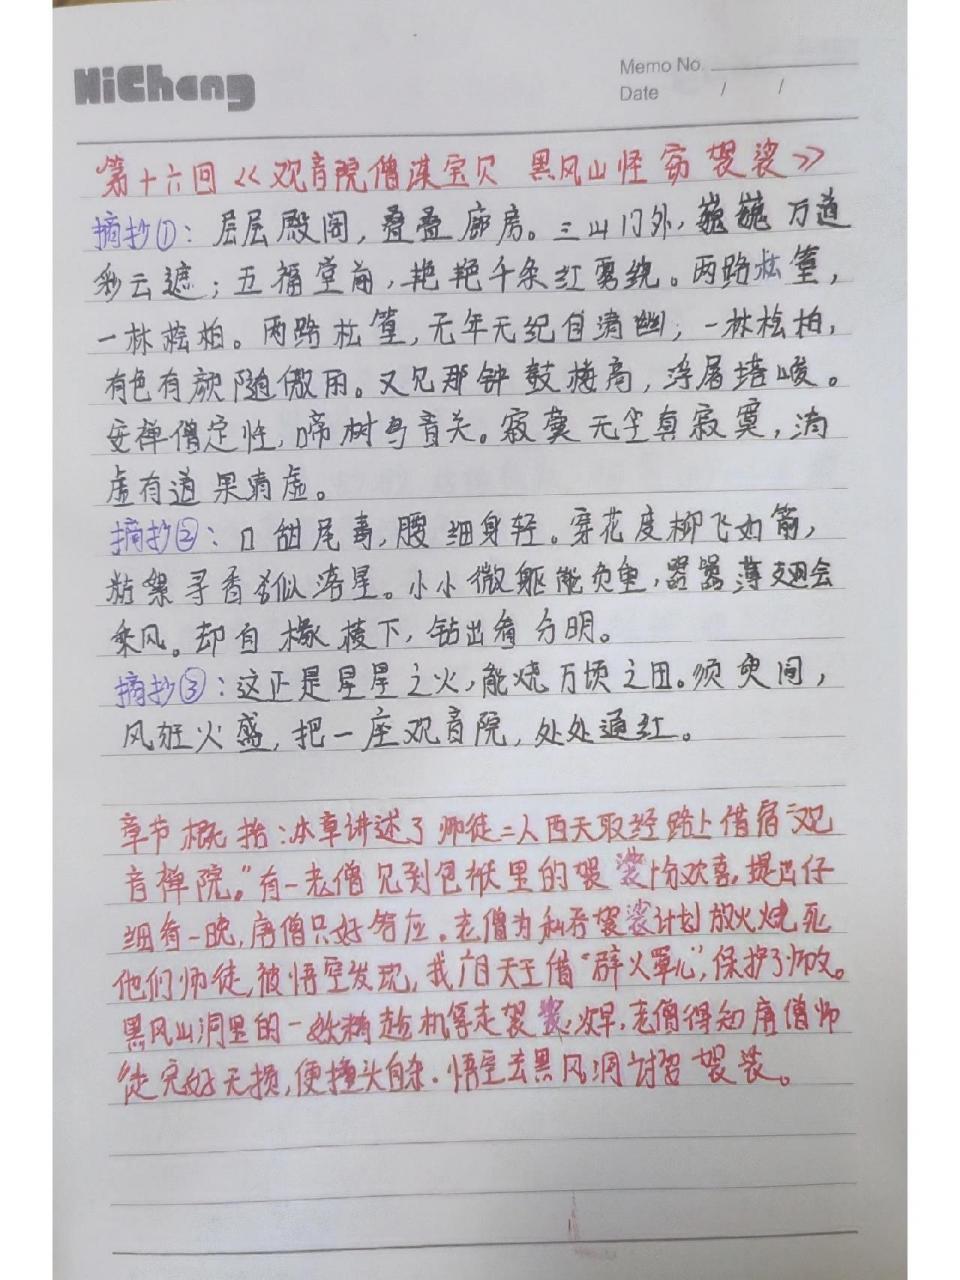 HiChang
Memo No.
Date / /
第十六回《观音院僧谋宝贝 黑风山怪窃袈裟》
摘抄①：层层殿阁，叠叠廊房。三山门外，巍巍万道
彩云遮；五福堂前，艳艳千条红雾绕。两路松篁，
一林桧柏。两路松篁，无年无纪自清幽；一林桧柏，
有色有颜随傲丽。又见那钟鼓楼高，浮屠塔峻。
安禅僧定性，啼树鸟音关。寂寞无尘真寂寞，清
虚有道果清虚。
摘抄②：口甜尾毒，腰细身轻。穿花度柳飞如箭，
粘絮寻香似落星。小小微躯能负重，嚣嚣薄翅会
乘风。却自椽棱下，钻出看分明。
摘抄③：这正是星星之火，能烧万顷之田。须臾间，
风狂火盛，把一座观音院，处处通红。
章节概括：本章讲述了师徒二人西天取经路上借宿"观
音禅院。"有一老僧见到包袱里的袈裟十分欢喜，提出仔
细看一晚，唐僧只好答应。老僧为私吞袈裟计划放火烧死
他们师徒，被悟空发现，找广目天王借"辟火罩儿"，保护了师父。
黑风山洞里的一妖精趁机拿走袈裟。次早，老僧得知唐僧师
徒完好无损，便撞头自杀。悟空去黑风洞讨要袈裟。